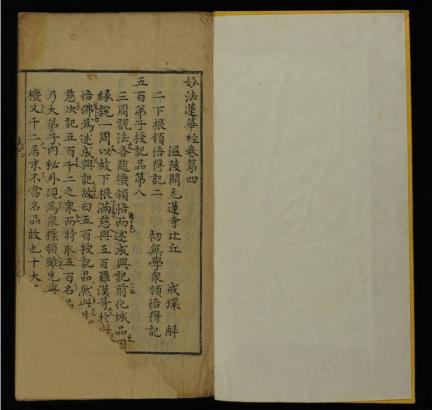 妙法蓮華經卷第四
溫陵開元蓮寺比丘 戒環 解
二下根領悟得記二 初無學衆領悟得記
五百弟子授記品第八
三周說法各隨機領悟而述成與記前化城品因
緣說一周以故下根滿慈與五百羅漢等於此
悟佛為述成與記故曰五百授記品然此
慈次記五百千二之衆而特取五百名品
乃大弟子內秘外現為衆標領雖先與
機又千二居末不當名品故也十大